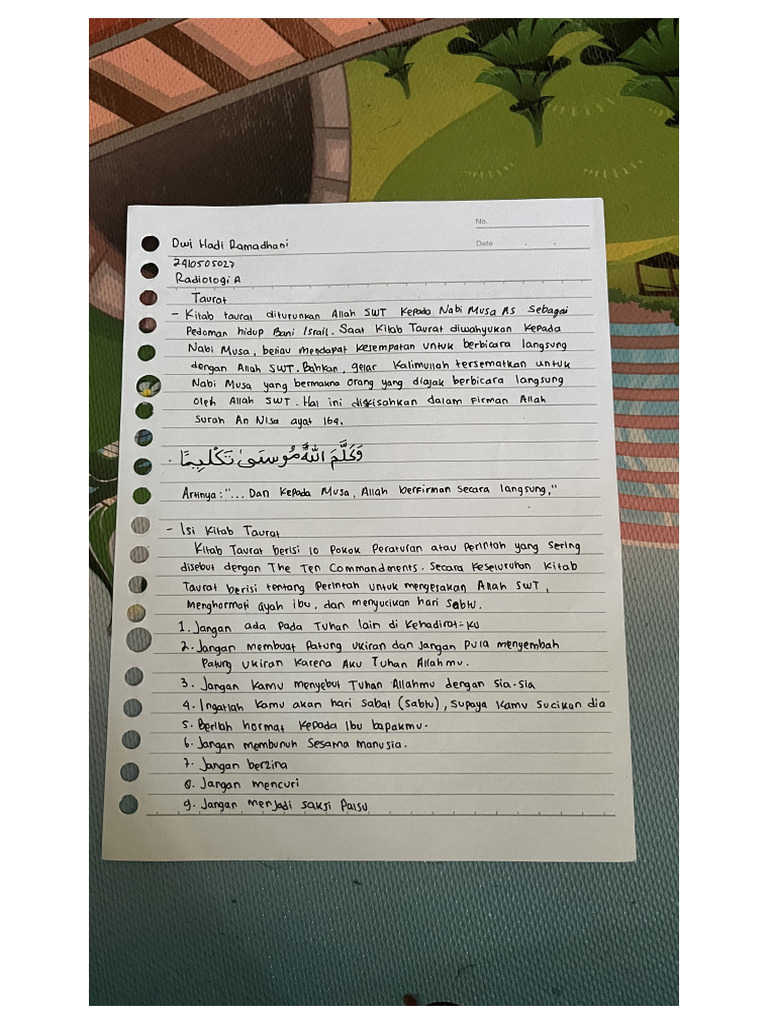 No.
Date
Dwi Hadi Ramadhani
2410505027
Radiologi A
Taurat
- Kitab taurat diturunkan Allah SWT Kepada Nabi Musa As Sebagai
Pedoman hidup Bani Israil. Saat Kitab Taurat diwahyukan Kepada
Nabi Musa, beliau mendapat Kesempatan untuk berbicara langsung
dengan Allah SWT. Bahkan, gelar Kalimullah tersematkan untuk
Nabi Musa yang bermakna orang yang diajak berbicara langsung
oleh Allah SWT. Hal ini dikisahkan dalam Firman Allah
Surah An Nisa ayat 164.
وَكَلَّمَ اللَّهُ مُوسَىٰ تَكْلِيمًا
Artinya: "... Dan Kepada Musa, Allah berfirman Secara langsung,"
- Isi Kitab Taurat
Kitab Taurat berisi 10 Pokok Peraturan atau Perintah yang Sering
disebut dengan The Ten Commandments. Secara Keseluruhan Kitab
Taurat berisi tentang Perintah untuk mengesakan Allah SWT,
Menghormati ayah ibu, dan menyucikan hari Sabtu.
1. Jangan ada Pada Tuhan lain di Kehadirat-Ku
2. Jangan membuat Patung Ukiran dan Jangan Pula menyembah
Patung Ukiran Karena Aku Tuhan Allahmu.
3. Jangan Kamu menyebut Tuhan Allahmu dengan Sia-Sia
4. Ingatlah Kamu akan hari Sabat (Sabtu), Supaya Kamu Sucikan dia
5. Berilah hormat Kepada Ibu bapakmu.
6. Jangan membunuh Sesama manusia.
7. Jangan berzina
8. Jangan mencuri
9. Jangan menjadi Saksi Palsu